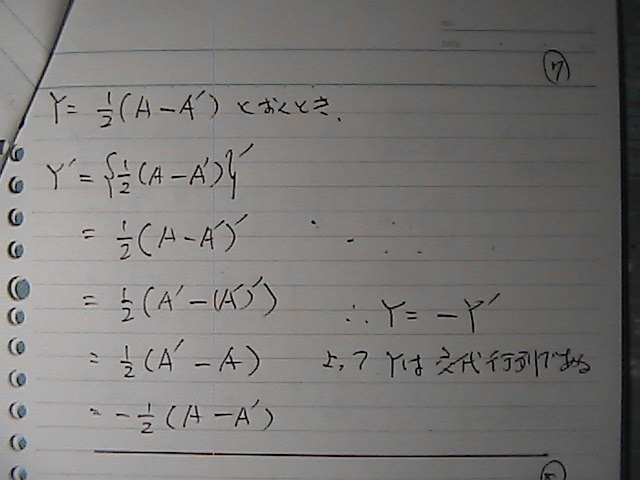 ⑦
Y = 1/2 (A - A′) とおくとき、
Y′ = {1/2 (A - A′)}′
= 1/2 (A - A′)′
= 1/2 (A′ - (A′)′)
= 1/2 (A′ - A)
= - 1/2 (A - A′)
∴ Y = - Y′
よって Yは交代行列である